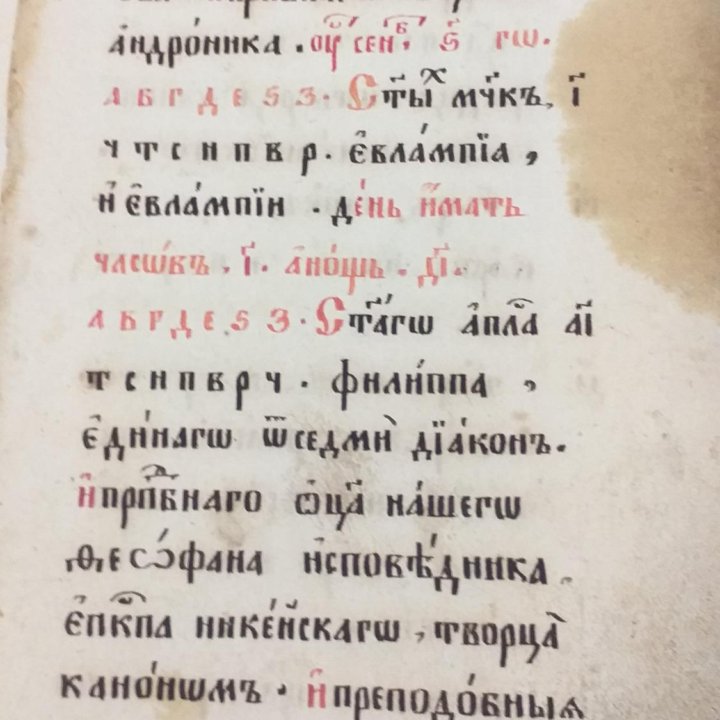 а҆ндро́ника . ѹ҆ сенⷡ҇, ѕ҃ гѡ.
а в г д е ѕ з · Ст҃ыⷯ мч҃къ, і҃
ч т с н п в р · є҆вла́мпїа ,
и҆ є҆вла́мпїи · де́нь и҆́мать
часѡ́въ . і҃. а҆ но́щь . д҃і.
а в г д е ѕ з · Ст҃а́гѡ а҆пⷭ҇ла а҃і
т с н п в р ч · фили́ппа ,
є҆ди́нагѡ ѿ седми̾ дїа́конъ.
и҆ прпⷣбнаго ѻ҆ц҃а̀ на́шегѡ
ѳ,еѻ́фана и҆сповѣ́дника .
є҆пкⷭ҇па нике́йскагѡ , творца̀
кано́нѡмъ · и҆ преподо́бныѧ